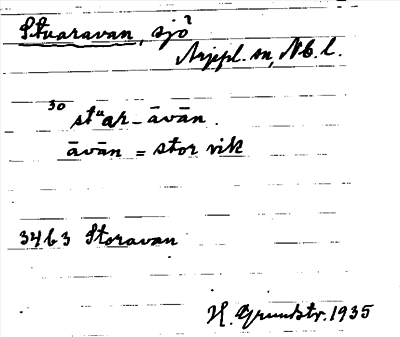 Stuaravan, sjö
Arjepl. sn, Nb. l.
30 stᵘar-āvān.
āvān = stor vik
3463 Storavan
H. Grundstr. 1935